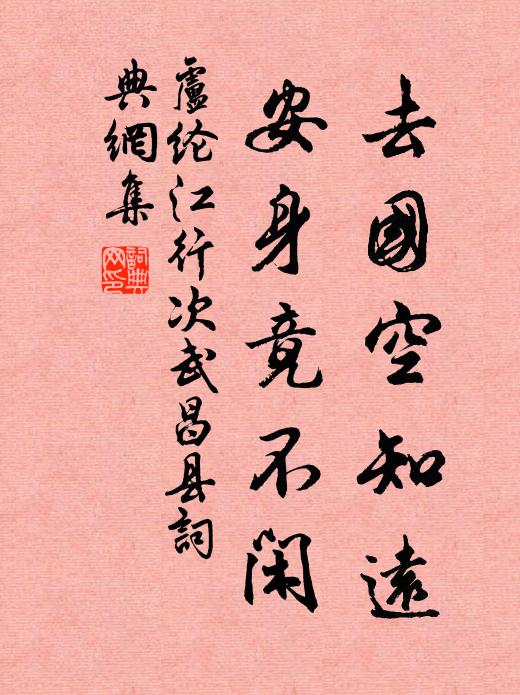 去國空知遠
安身竟不闲
盧纶江行次武昌县詞
典網集
詞典
网印